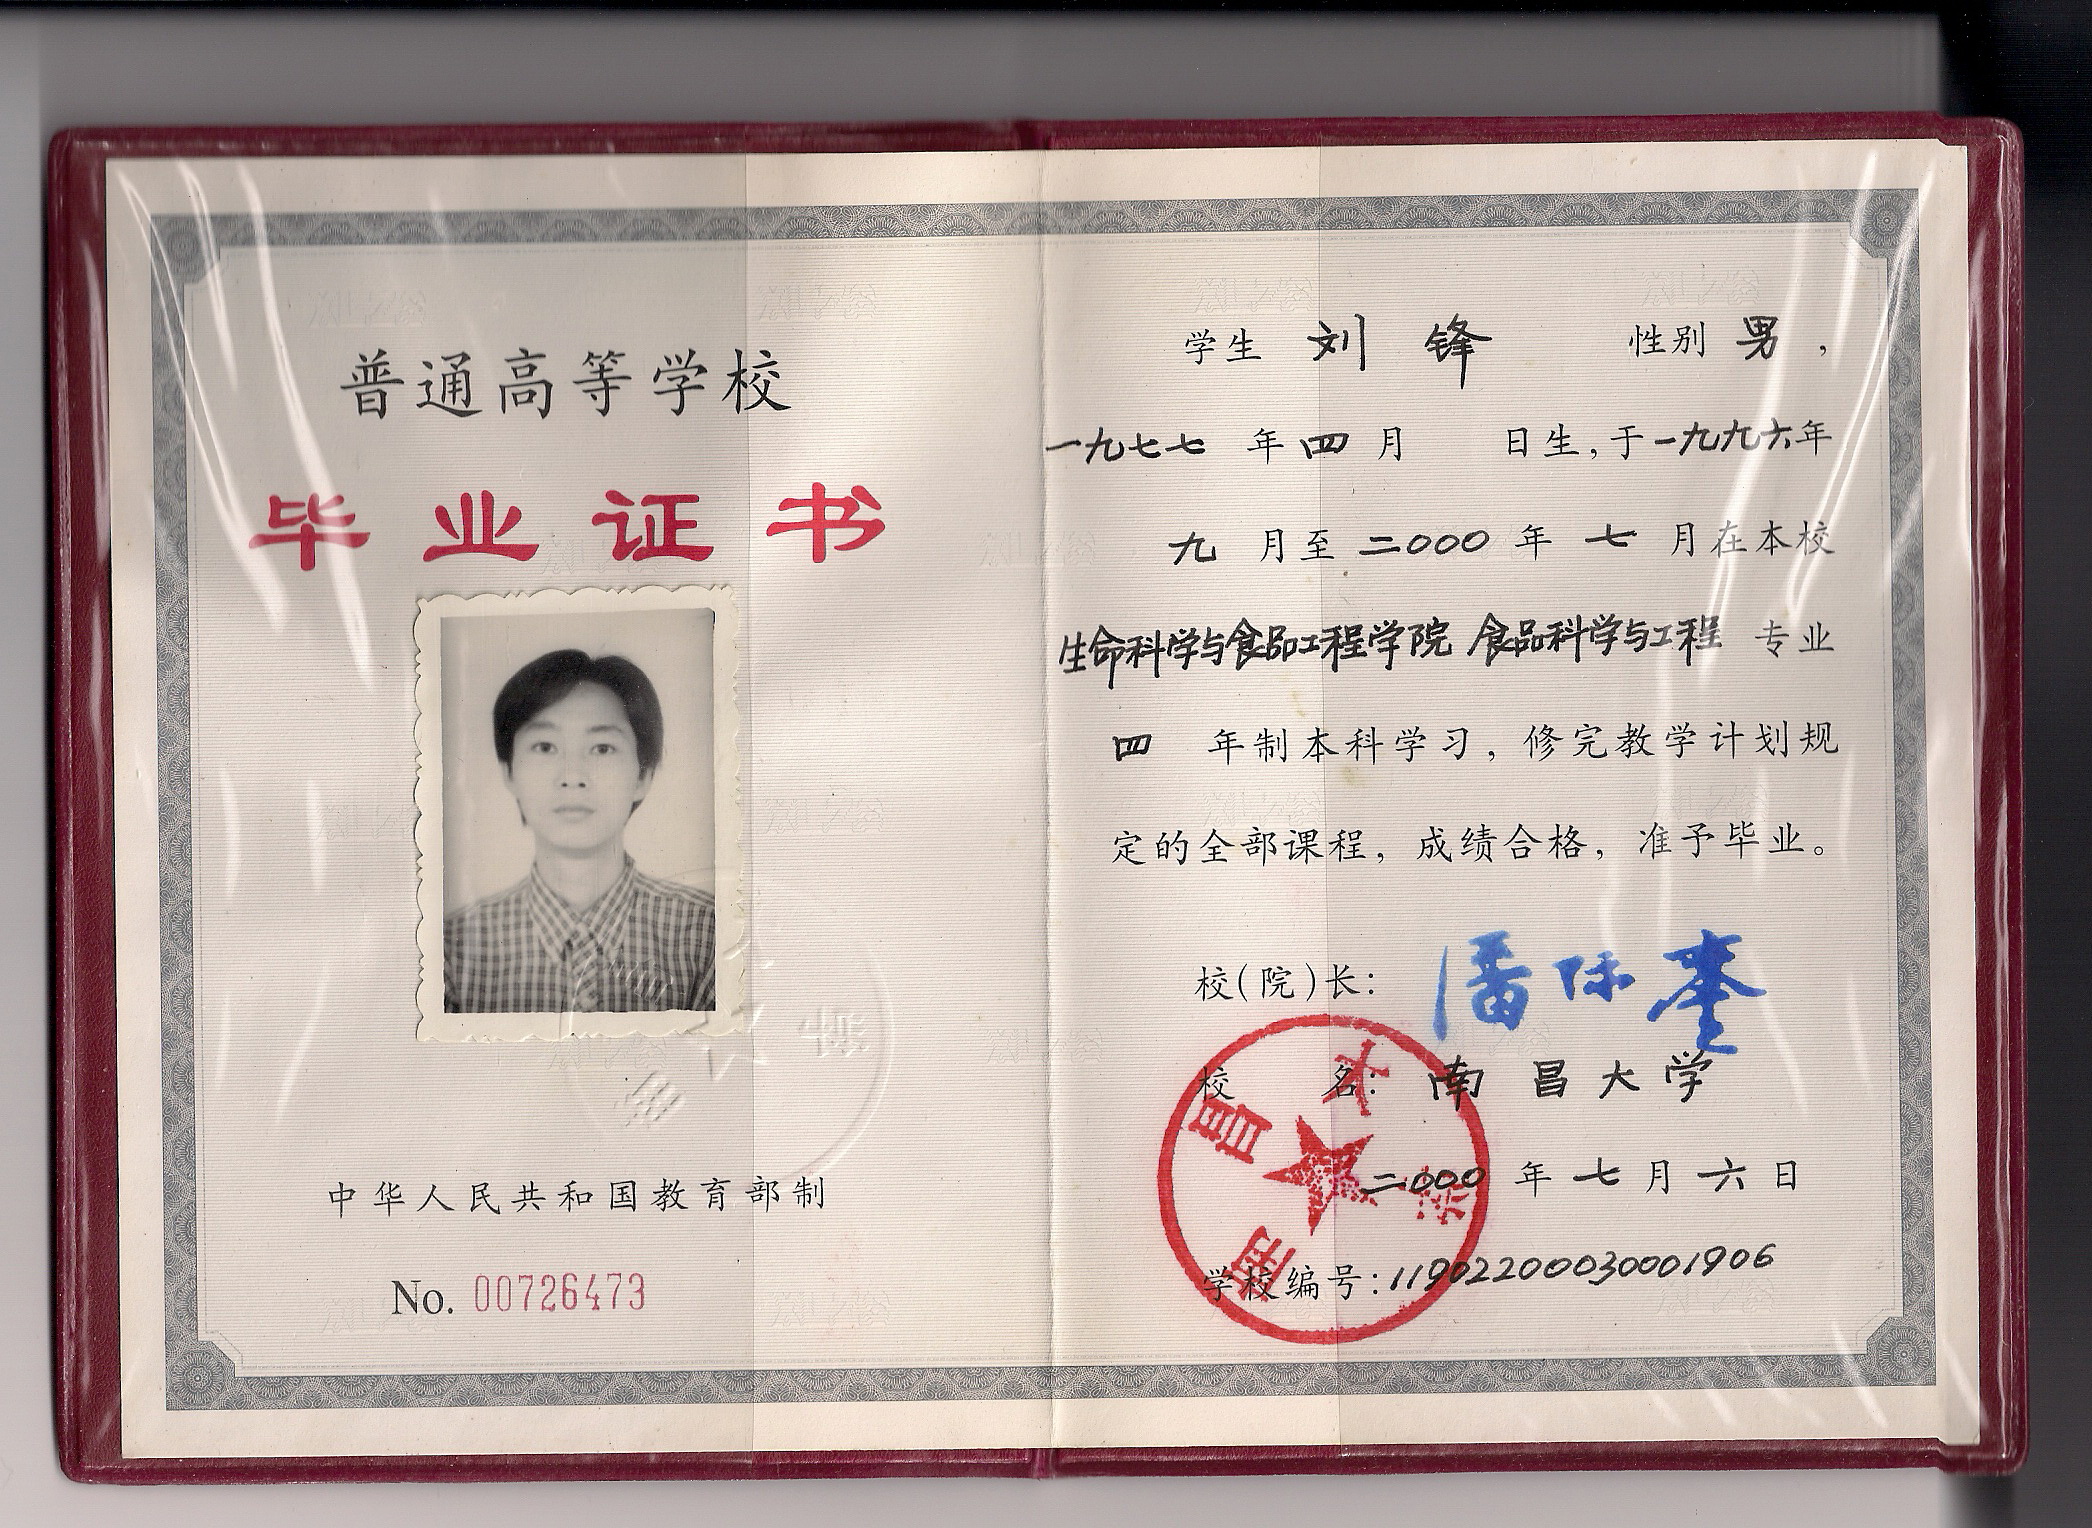 普通高等学校
毕业证书
中华人民共和国教育部制
No. 00726473
学生 刘 锋 性别 男，
一九七七 年 四 月 日生，于一九九六年
九 月至 二000 年 七 月在本校
生命科学与食品工程学院 食品科学与工程 专业
四 年制本科学习，修完教学计划规
定的全部课程，成绩合格，准予毕业。
校（院）长：潘际銮
校 名：南昌大学
二000 年 七 月 六 日
学校编号：119022000030001906
南昌大学